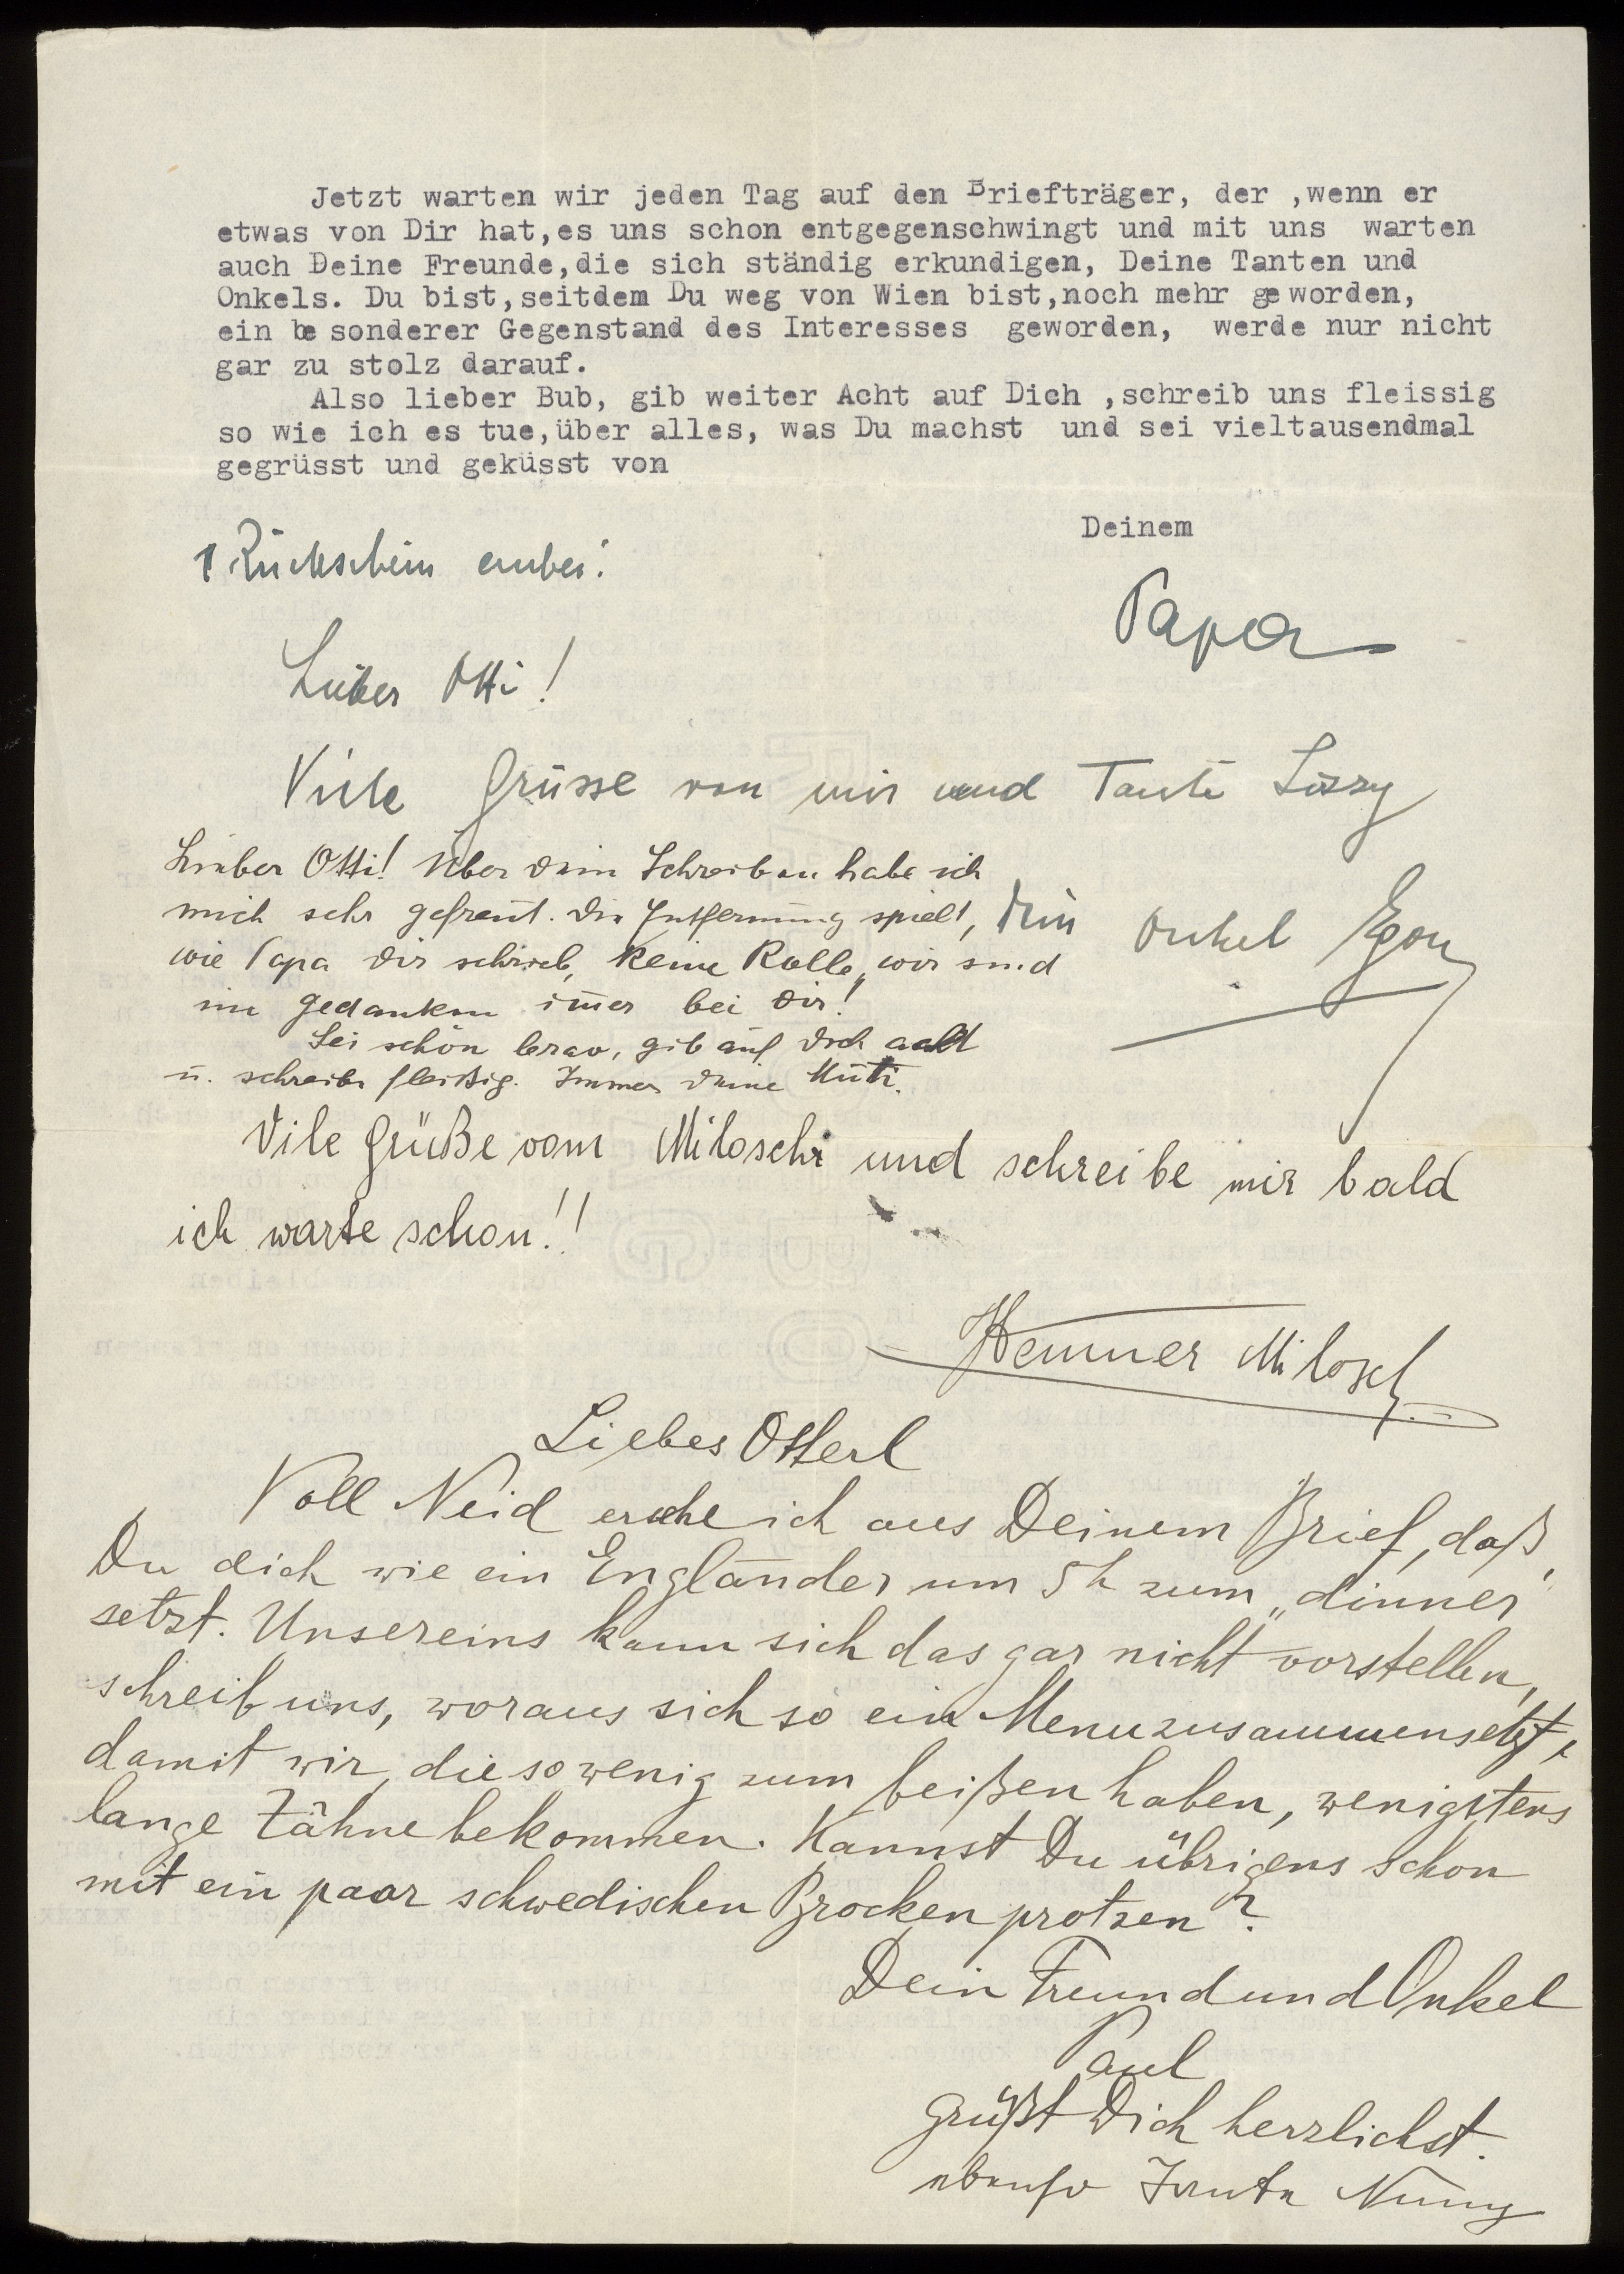 Jetzt warten wir jeden Tag auf den Briefträger, der ,wenn er
etwas von Dir hat,es uns schon entgegenschwingt und mit uns warten
auch Deine Freunde,die sich ständig erkundigen, Deine Tanten und
Onkels. Du bist,seitdem Du weg von Wien bist,noch mehr geworden,
ein besonderer Gegenstand des Interesses geworden, werde nur nicht
gar zu stolz darauf.
Also lieber Bub, gib weiter Acht auf Dich ,schreib uns fleissig
so wie ich es tue,über alles, was Du machst und sei vieltausendmal
gegrüsst und geküsst von
Deinem
1 Rückschein anbei!
Papa
Lieber Otti!
Viele Grüsse von mir und Tante Lizzy
Dein Onkel Egon
Lieber Otti! Über Dein Schreiben habe ich
mich sehr gefreut. Die Entfernung spielt,
wie Papa Dir schrieb, keine Rolle, wir sind
im Gedanken im̅er bei Dir!
Sei schön brav, gib auf Dich acht
u. schreibe fleißig. Immer Deine Muti.
Vile Grüße vom Miloschi und schreibe mir bald
ich warte schon!!
Milosch
Liebes Otterl
Voll Neid ersehe ich aus Deinem Brief, daß
Du dich wie ein Engländer um 5h zum „dinner"
setzt. Unsereins kann sich das gar nicht vorstellen,
schreib uns, woraus sich so ein Menu zusammensetzt,
damit wir, die so wenig zum beißen haben, wenigstens
lange Zähne bekommen. Kannst Du übrigens schon
mit ein paar schwedischen Brocken protzen?
Dein Freund und Onkel
Paul
grüßt Dich herzlichst.
ebenso Tante Nuny